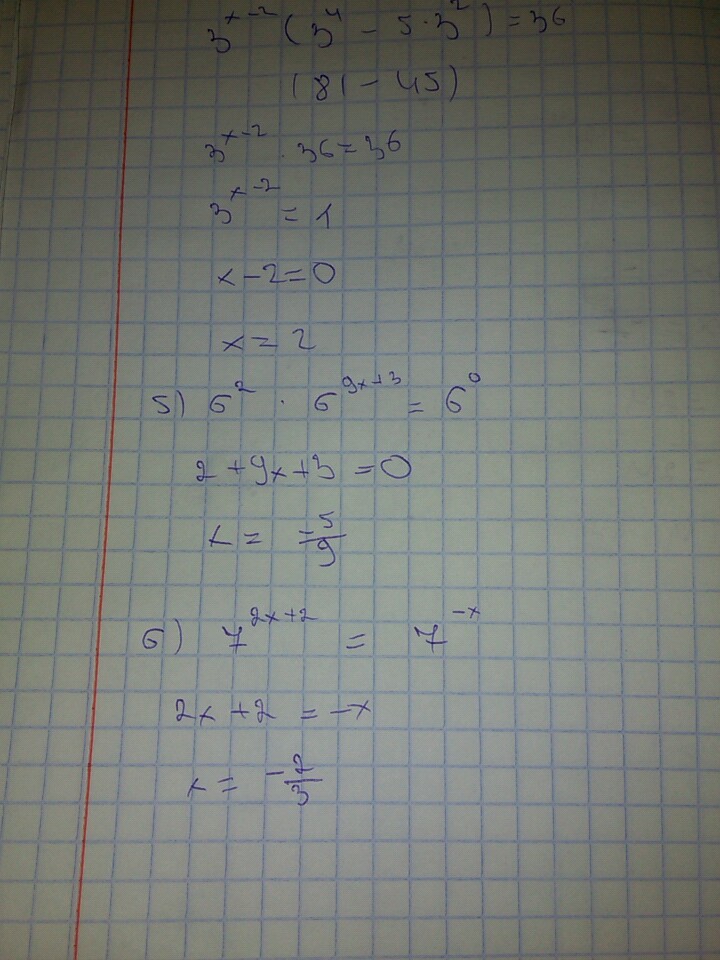 3^{x-2} (3^4 - 5·3^2) = 36
(81 - 45)
3^{x-2} · 36 = 36
3^{x-2} = 1
x - 2 = 0
x = 2
5) 6^2 · 6^{9x+3} = 6^0
2 + 9x + 3 = 0
x = -5/9
6) 7^{2x+2} = 7^{-x}
2x + 2 = -x
x = -2/3